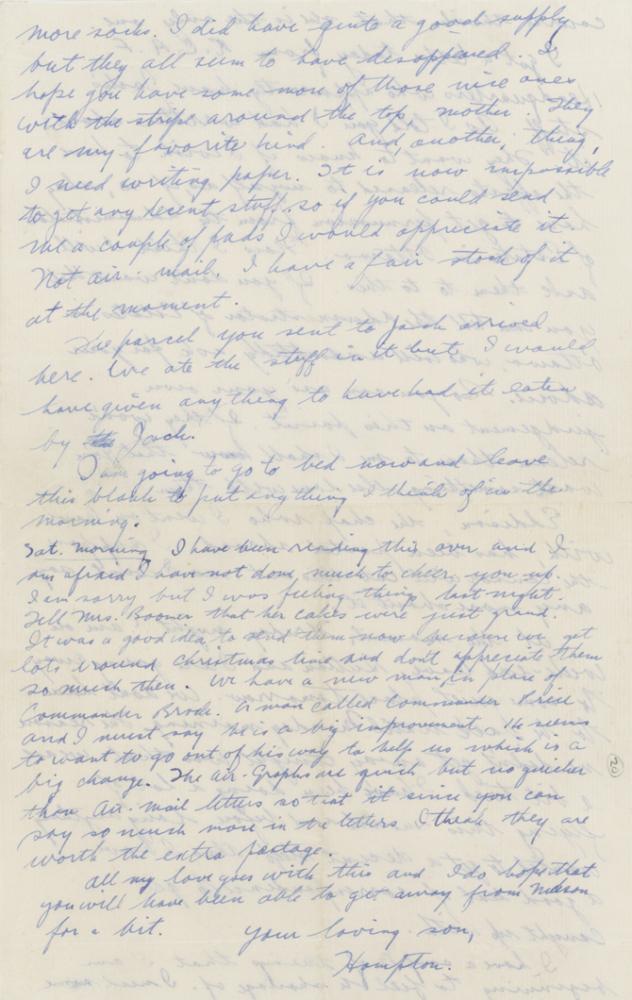 more socks. I did have quite a good supply
but they all seem to have disappeared. I
hope you have some more of those nice ones
with the stripe around the top, mother. They
are my favorite kind. And, another, thing,
I need writing paper. It is now impossible
to get any decent stuff, so if you could send
me a couple of pads I would appreciate it
Not air-mail. I have a fair stock of it
at the moment.
The parcel you sent to Jack arrived
here. We ate the stuff in it but I would
have given anything to have had it eaten
by the Jack.
I am going to go to bed now and leave
this blank to put anything I think of in the
morning.
Sat. Morning I have been reading this over and I
am afraid I have not done much to cheer you up.
I am sorry but I was feeling things last night.
Tell Mrs. Boomer that her cakes were just grand.
It was a good idea to send them now because we get
lots around Christmas time and don't appreciate them
so much then. We have a new man in place of
Commander Brode. A man called Commander Price
and I must say he is a big improvement. He seems
to want to go out of his way to help us which is a
big change. The Air-Graphs are quick but no quicker
than Air-Mail letters so that it since you can
say so much more in the letters I think they are
worth the extra postage.
All my love goes with this and I do hope that
you will have been able to get away from
for a bit. Your loving son,
Hampton.
20